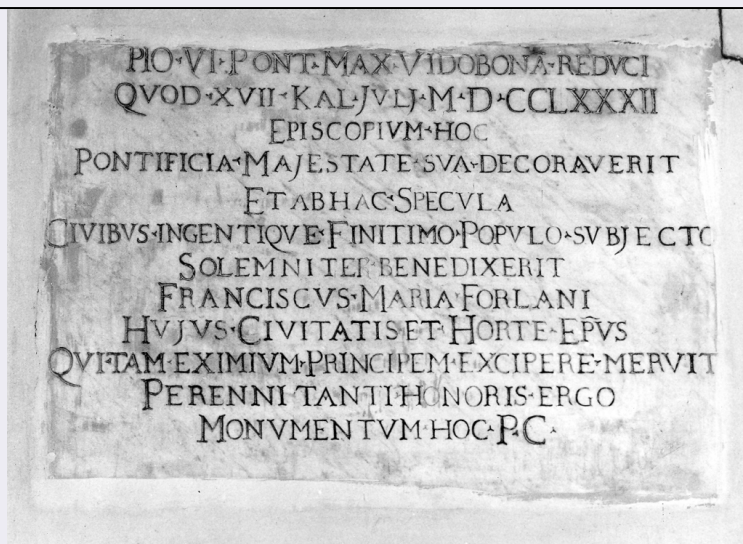 PIO·VI·PONT·MAX·VIDOBONA·REDVCI
QVOD·XVII·KAL·JVLJ·M·D·CCLXXXII
EPISCOPIVM·HOC
PONTIFICIA·MAJESTATE·SVA·DECORAVERIT
ET AB HAC·SPECVLA
CIVIBVS·INGENTIQVE·FINITIMO·POPVLO·SVBJECTO
SOLEMNITER BENEDIXERIT
FRANCISCVS·MARIA·FORLANI
HVJVS·CIVITATIS·ET·HORTE·EP̃VS
QVI·TAM·EXIMIVM·PRINCIPEM·EXCIPERE·MERVIT
PERENNI·TANTI·HONORIS·ERGO
MONVMENTVM·HOC·P·C·